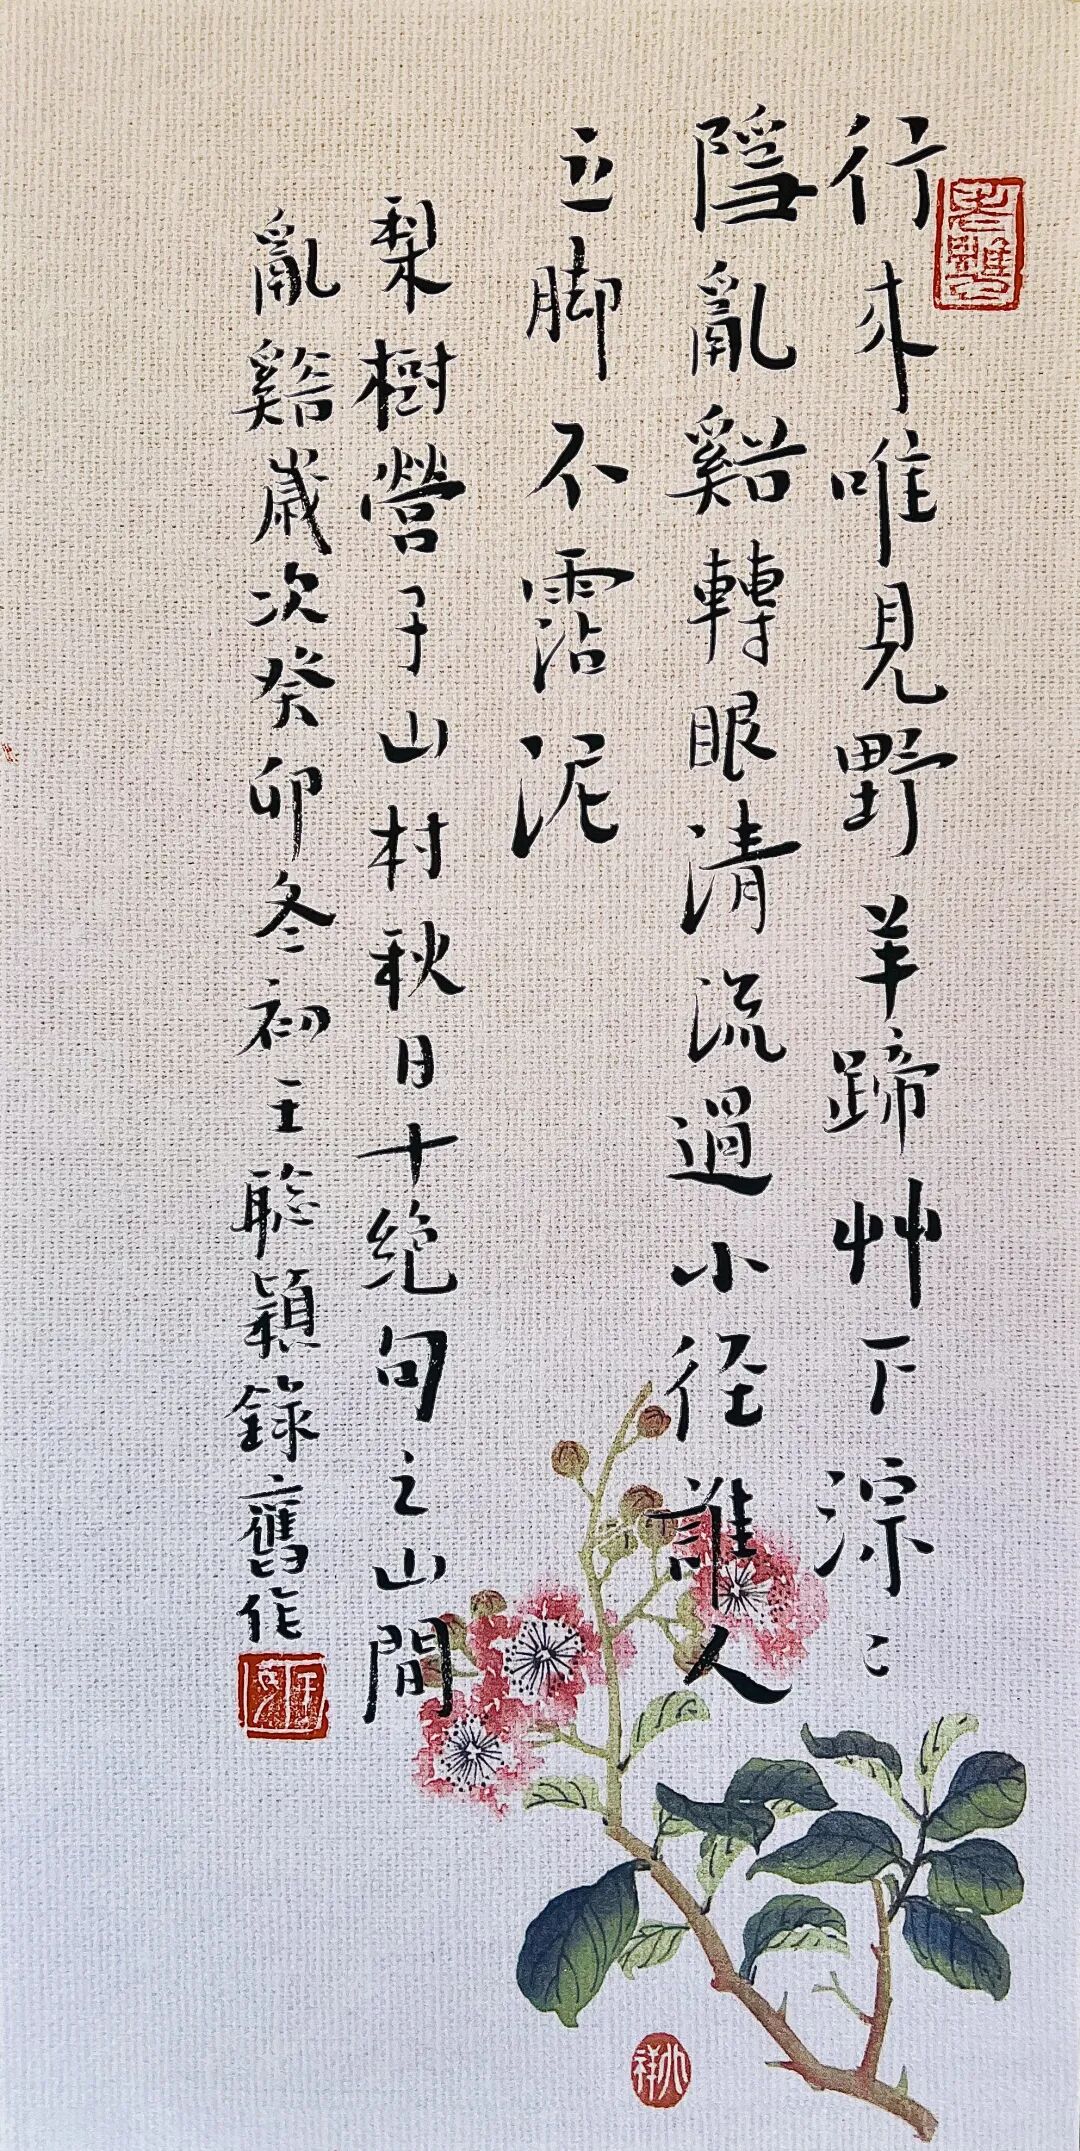 行来唯見野羊蹄艸下淙〻
隱亂谿轉眼清流過小径誰人
立脚不霑泥
梨樹營子山村秋日十絶句之山間
亂谿歲次癸卯冬初王聡穎錄舊作